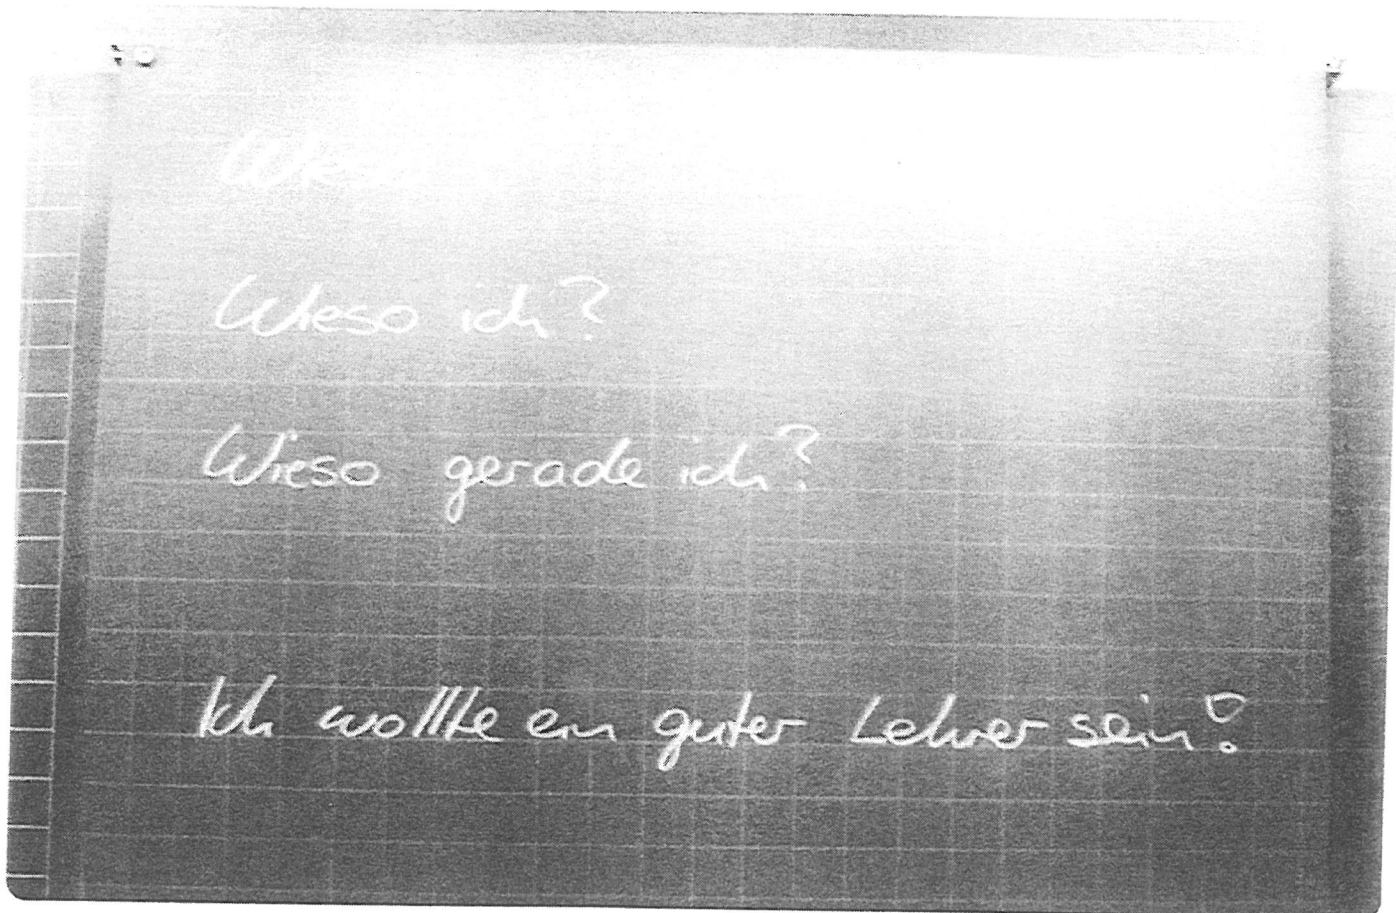 Wieso
Wieso ich?
Wieso gerade ich?
Ich wollte ein guter Lehrer sein!